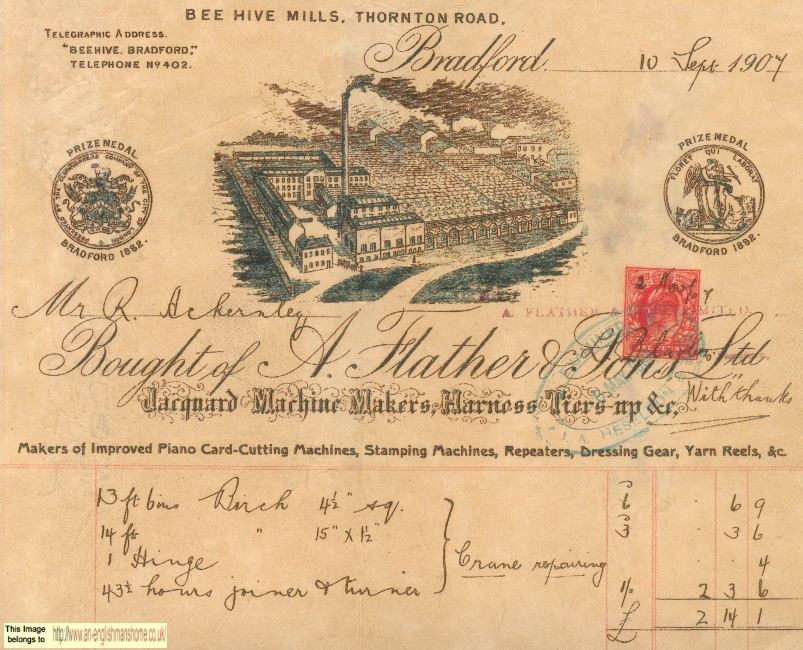 BEE HIVE MILLS, THORNTON ROAD,
TELEGRAPHIC ADDRESS.
"BEEHIVE, BRADFORD,"
TELEPHONE No 402.
Bradford 10 Sept 1907
PRIZE MEDAL
PRESENTED BY THE CLOTHWORKERS COMPANY OF THE CITY OF LONDON
BRADFORD 1882.
PRIZE MEDAL
FLORET QUI LABORAT
BRADFORD 1882.
Mr R. Ackernley
A. FLATHER & LIMITED
Bought of A. Flather & Sons Ltd
With thanks
Jacquard Machine Makers, Harness Tiers-up &c,
Makers of Improved Piano Card-Cutting Machines, Stamping Machines, Repeaters, Dressing Gear, Yarn Reels, &c.
13 ft 6 ins Birch 4½" sq. 6 . 6 9
14 ft " 15" x 1½" 3 . 3 6
1 Hinge . . 4
Crane repairing
43½ hours joiner & turner 1/- 2 3 6
£ 2 14 1
This Image belongs to
http://www.an-englishmanshome.co.uk/